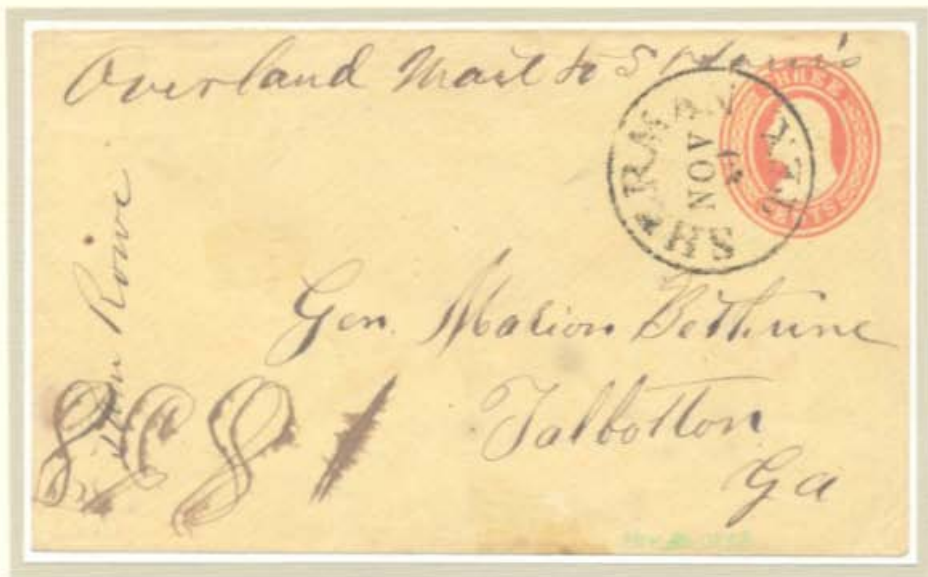 Overland Mail to St Louis
THREE
CENTS
SHERMAN TEX
NOV
Rowe
Gen. Marion Bethune
Talbotton
Ga